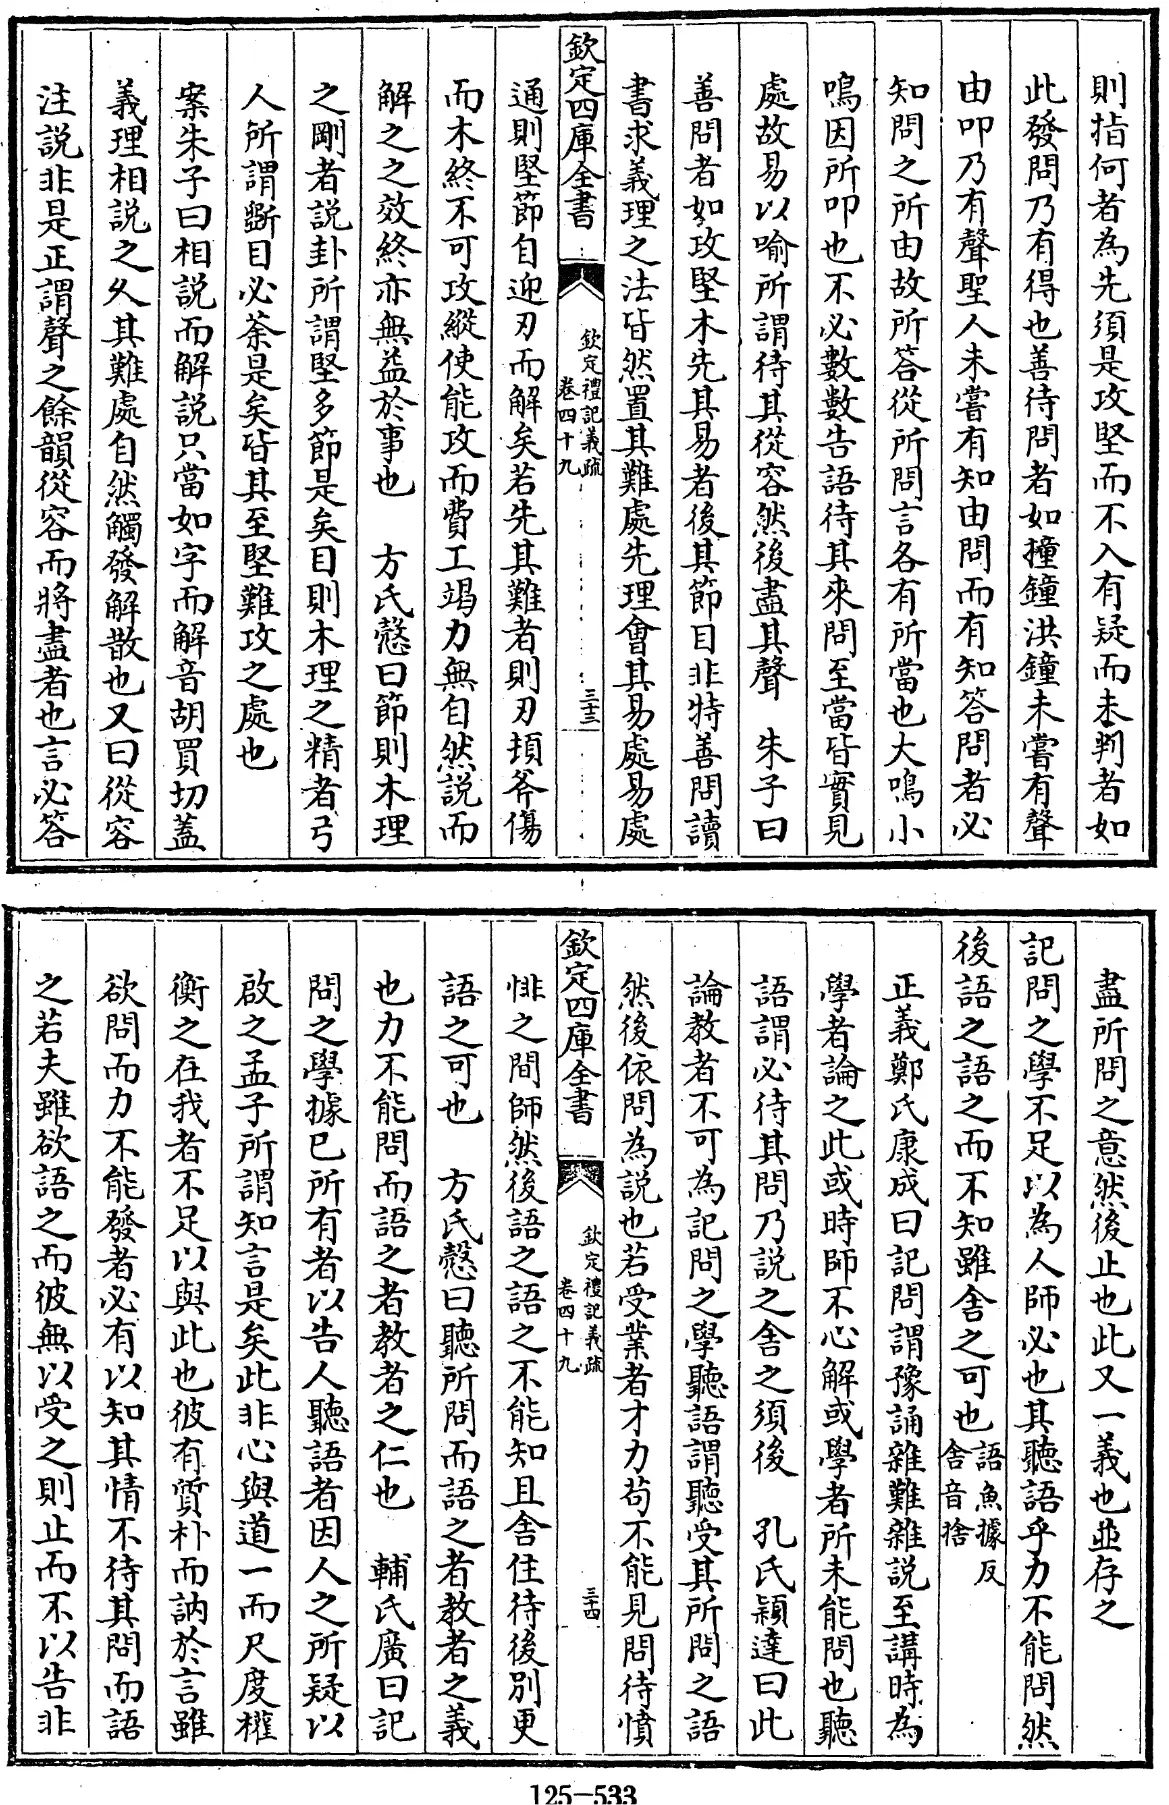 則指何者為先須是攻堅而不入有疑而未判者如
此發問乃有得也善待問者如撞鐘洪鐘未嘗有聲
由叩乃有聲聖人未嘗有知由問而有知答問者必
知問之所由故所答從所問言各有所當也大鳴小
鳴因所叩也不必數數告語待其來問至當皆實見
處故易以喻所謂待其從容然後盡其聲　朱子曰
善問者如攻堅木先其易者後其節目非特善問讀
書求義理之法皆然置其難處先理會其易處易處
欽定四庫全書
欽定禮記義疏
卷四十九
三十三
通則堅節自迎刃而解矣若先其難者則刃頓斧傷
而木終不可攻縱使能攻而費工竭力無自然說而
解之之效終亦無益於事也　方氏慤曰節則木理
之剛者說卦所謂堅多節是矣目則木理之精者弓
人所謂斲目必荼是矣皆其至堅難攻之處也
案朱子曰相說而解說只當如字而解音胡買切蓋
義理相說之久其難處自然觸發解散也又曰從容
注說非是正謂聲之餘韻從容而將盡者也言必答
盡所問之意然後止也此又一義也並存之
記問之學不足以為人師必也其聽語乎力不能問然
後語之語之而不知雖舍之可也語魚據反
舍音捨
正義鄭氏康成曰記問謂豫誦雜難雜說至講時為
學者論之此或時師不心解或學者所未能問也聽
語謂必待其問乃說之舍之須後　孔氏穎達曰此
論教者不可為記問之學聽語謂聽受其所問之語
然後依問為說也若受業者才力苟不能見問待憤
欽定四庫全書
欽定禮記義疏
卷四十九
三十四
悱之間師然後語之語之不能知且舍住待後別更
語之可也　方氏慤曰聽所問而語之者教者之義
也力不能問而語之者教者之仁也　輔氏廣曰記
問之學據已所有者以告人聽語者因人之所疑以
啟之孟子所謂知言是矣此非心與道一而尺度權
衡之在我者不足以與此也彼有質朴而訥於言雖
欲問而力不能發者必有以知其情不待其問而語
之若夫雖欲語之而彼無以受之則止而不以告非
125-533